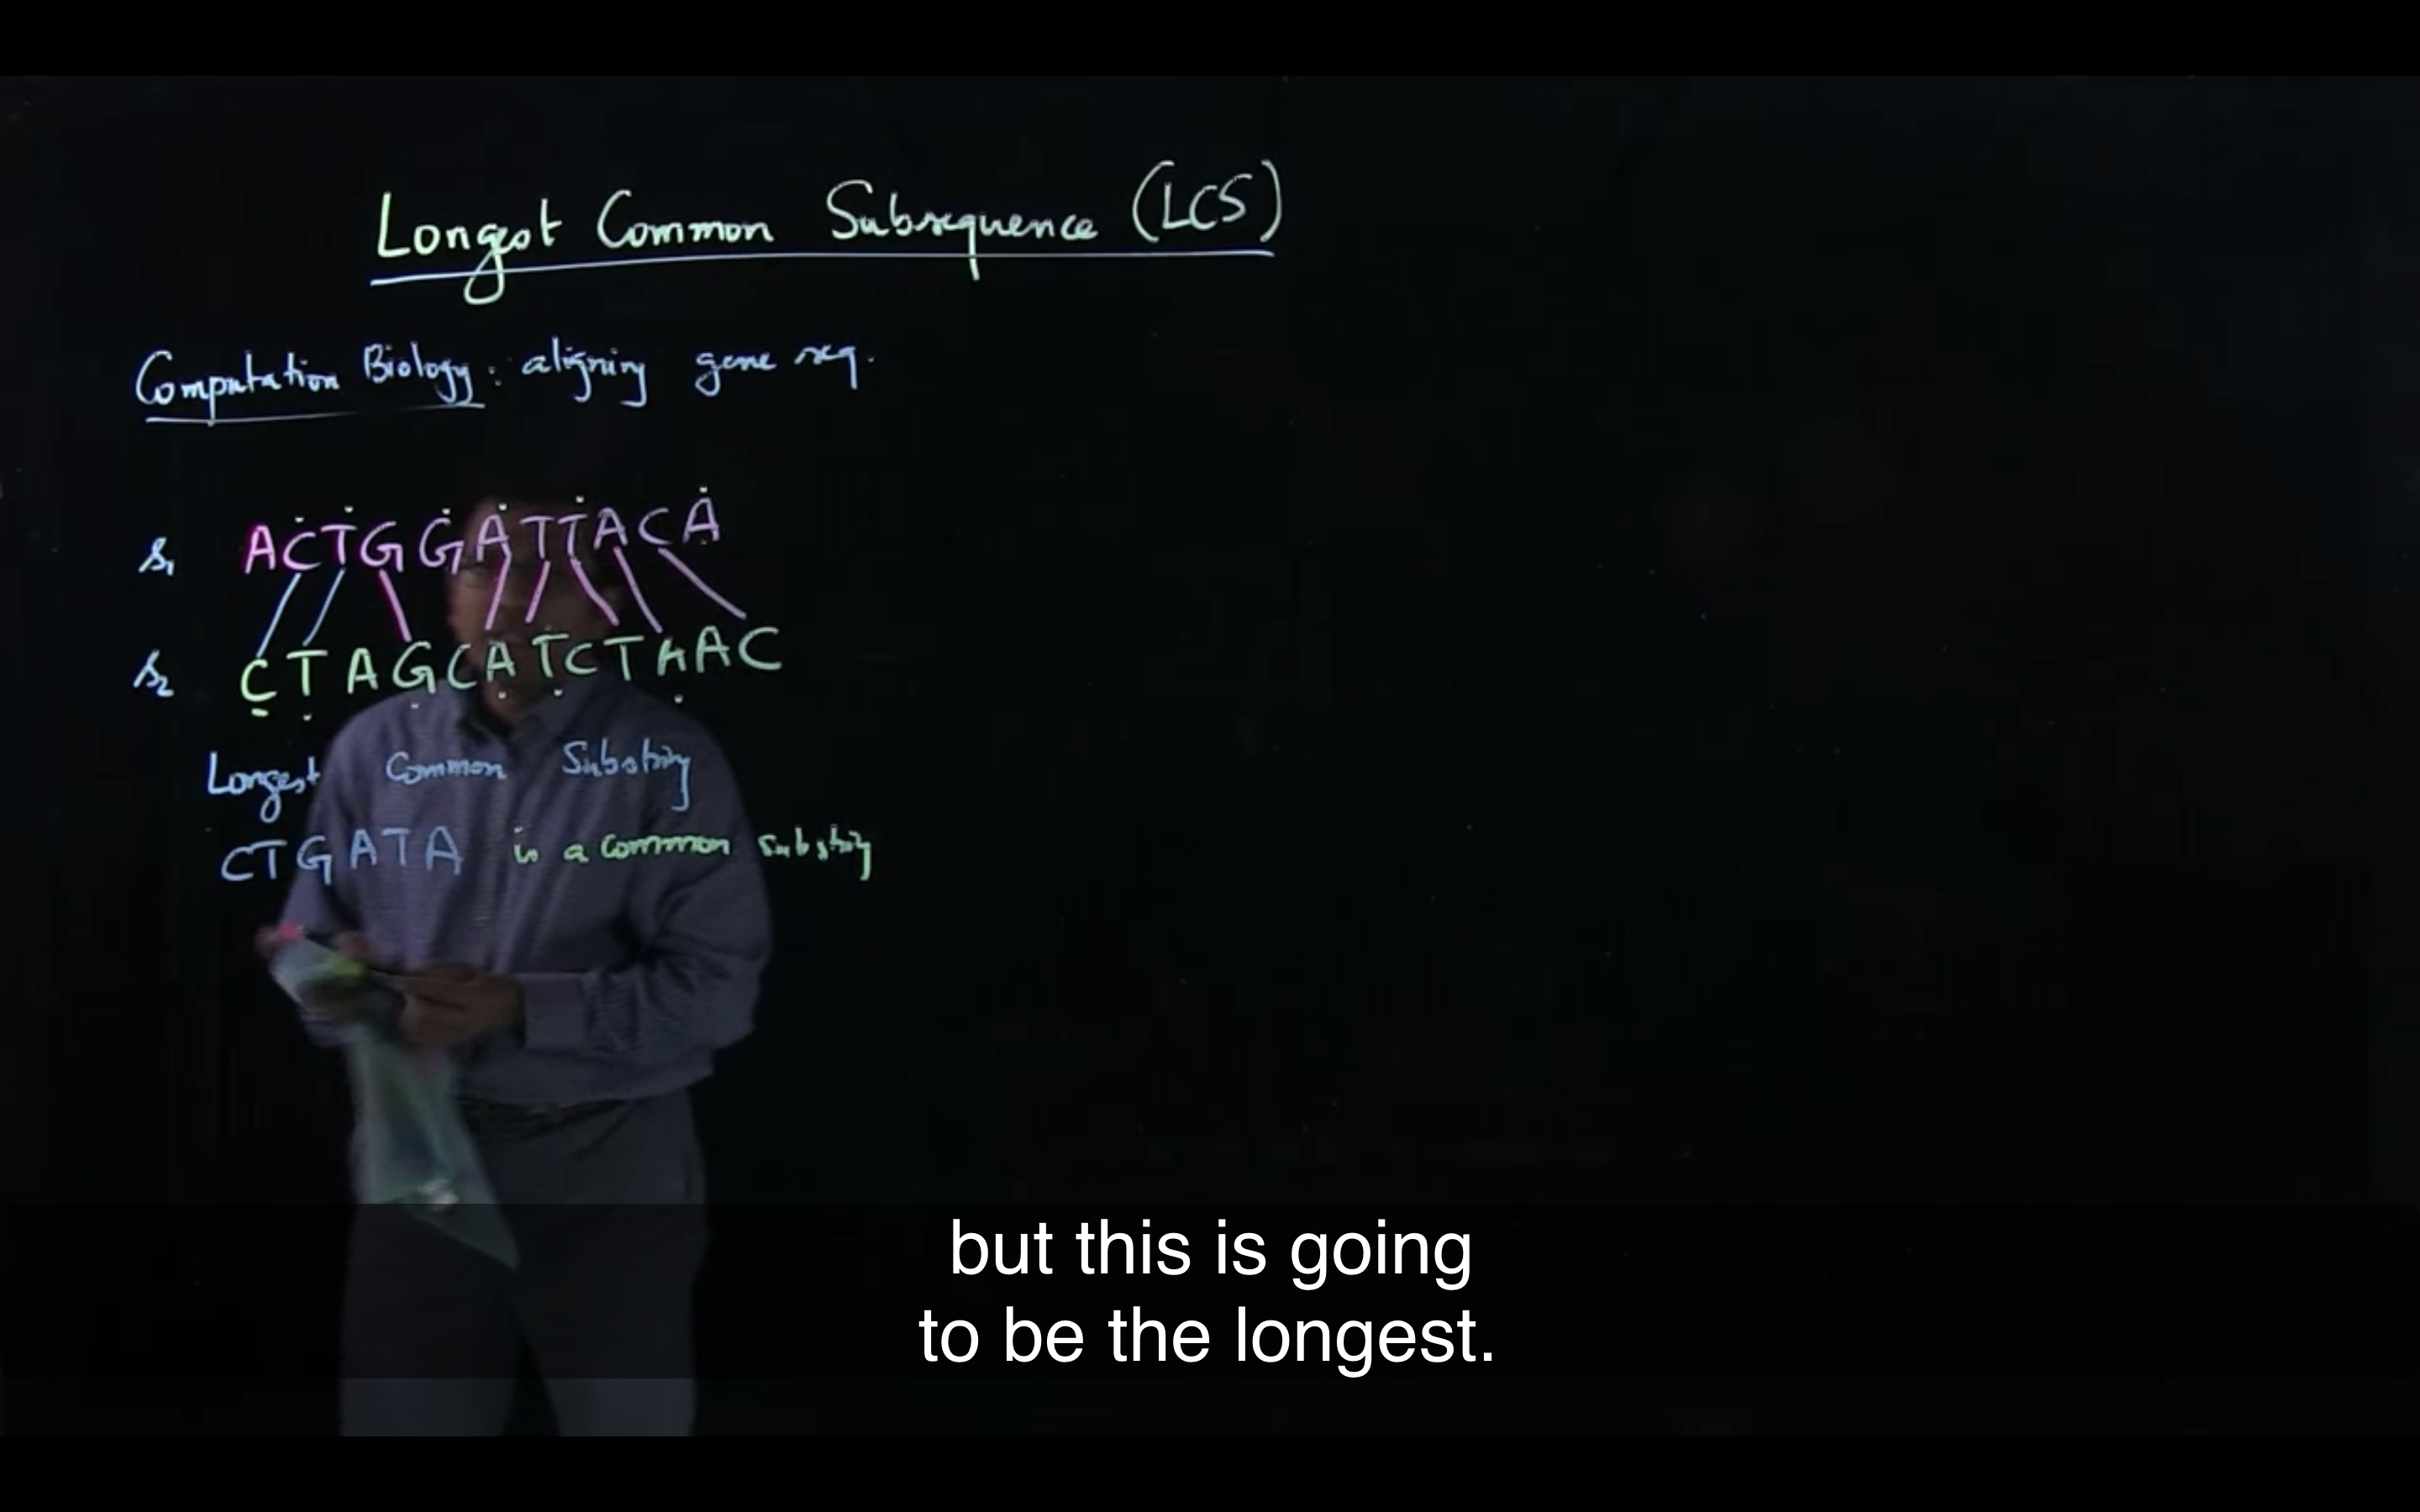 Longest Common Subsequence (LCS)
Computation Biology: aligning gene seq.
s₁ ACTGGATTACA
s₂ CTAGCATCTAAC
Longest Common Substring
CTGATA is a common substring
but this is going
to be the longest.